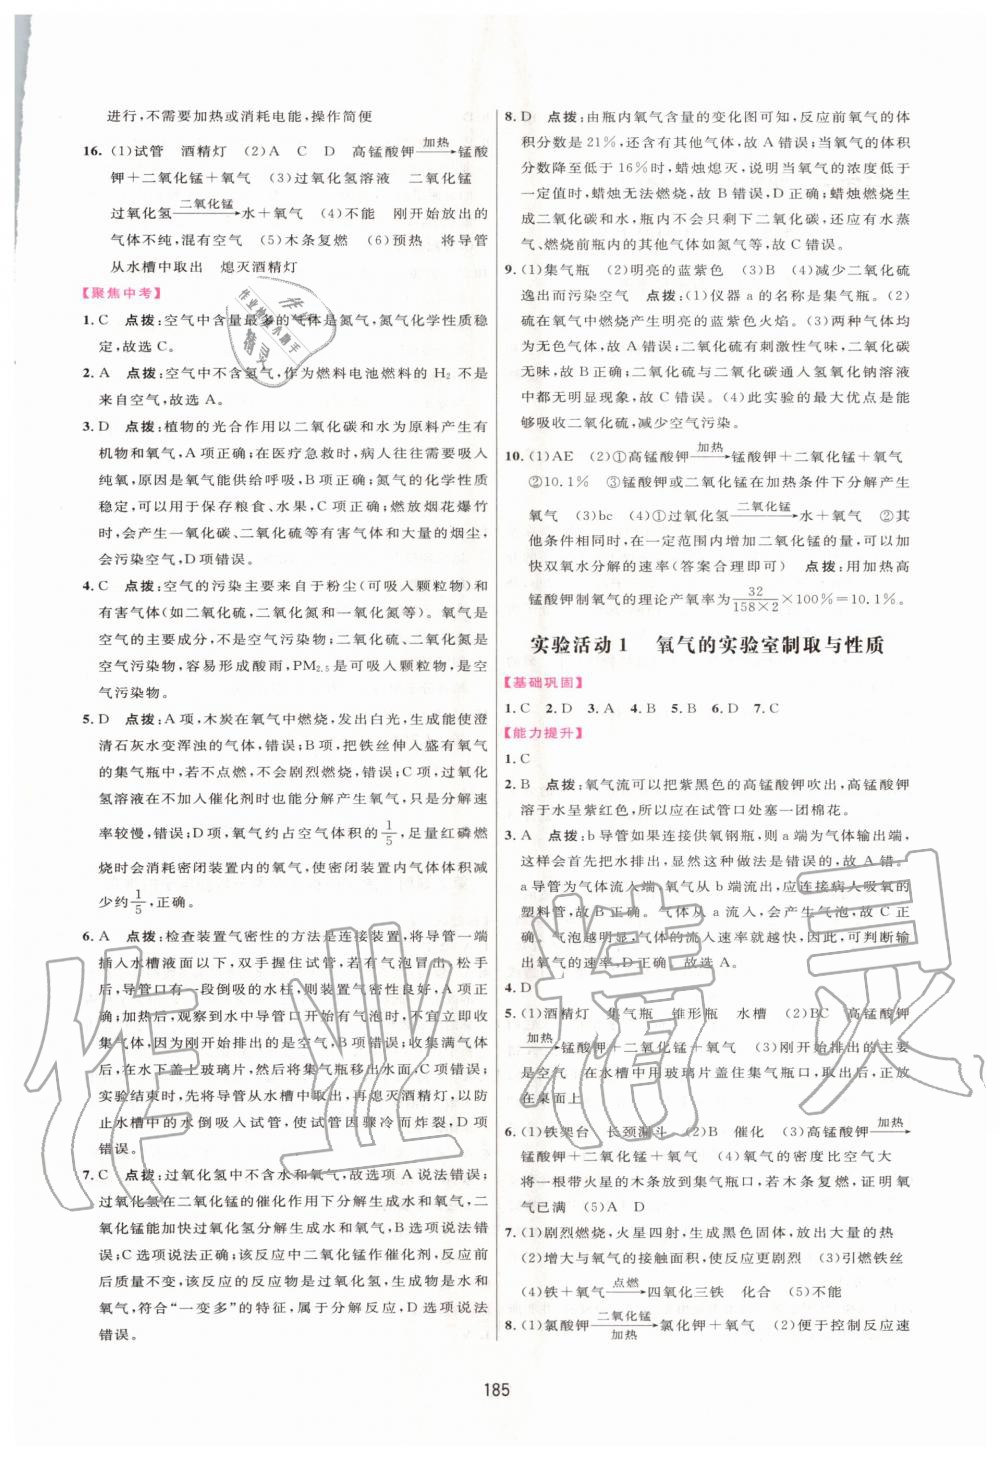 进行,不需要加热或消耗电能,操作简便
16. (1)试管 酒精灯 (2)A C D 高锰酸钾 加热→ 锰酸
钾＋二氧化锰＋氧气 (3)过氧化氢溶液 二氧化锰
过氧化氢 二氧化锰→ 水＋氧气 (4)不能 刚开始放出的
气体不纯,混有空气 (5)木条复燃 (6)预热 将导管
从水槽中取出 熄灭酒精灯
【聚焦中考】
1. C 点拨:空气中含量最多的气体是氮气,氮气化学性质稳
定,故选C。
2. A 点拨:空气中不含氢气,作为燃料电池燃料的 H₂ 不是
来自空气,故选A。
3. D 点拨:植物的光合作用以二氧化碳和水为原料产生有
机物和氧气,A项正确;在医疗急救时,病人往往需要吸入
纯氧,原因是氧气能供给呼吸,B项正确;氮气的化学性质
稳定,可以用于保存粮食、水果,C项正确;燃放烟花爆竹
时,会产生一氧化碳、二氧化硫等有害气体和大量的烟尘,
会污染空气,D项错误。
4. C 点拨:空气的污染主要来自于粉尘(可吸入颗粒物)和
有害气体(如二氧化硫,二氧化氮和一氧化氮等)。氧气是
空气的主要成分,不是空气污染物;二氧化硫、二氧化氮是
空气污染物,容易形成酸雨,PM₂.₅是可吸入颗粒物,是空
气污染物。
5. D 点拨:A项,木炭在氧气中燃烧,发出白光,生成能使澄
清石灰水变浑浊的气体,错误;B项,把铁丝伸入盛有氧气
的集气瓶中,若不点燃,不会剧烈燃烧,错误;C项,过氧化
氢溶液在不加入催化剂时也能分解产生氧气,只是分解速
率较慢,错误;D项,氧气约占空气体积的1/5,足量红磷燃
烧时会消耗密闭装置内的氧气,使装置内气体体积减
少约1/5,正确。
6. A 点拨:检查装置气密性的方法是连接装置,将导管一端
插入水槽液面以下,双手握住试管,若有气泡冒出,松手
后,导管口有一段倒吸的水柱,则装置气密性良好,A项正
确;加热后,观察到水中导管口开始有气泡时,不宜立即收
集氧气,因刚开始排出的是空气,B项错误;收集满气体
后,在水下盖上玻璃片,然后将集气瓶移出水面,C项错误;
实验结束时,先将导管从水槽中取出,再熄灭酒精灯,以防
止水槽中的水倒吸入试管,使试管因骤冷而炸裂,D项
错误。
7. C 点拨:过氧化氢中不含水和氧气,故选项A说法错误;
过氧化氢在二氧化锰的催化作用下分解生成水和氧气,二
氧化锰能加快过氧化氢分解生成水和氧气,B选项说法错
误;C选项说法正确;该反应中二氧化锰作催化剂,反应前
后质量不变,该反应的反应物是过氧化氢,生成物是水和
氧气,符合“一变多”的特征,属于分解反应,D选项说法
错误。
8. D 点拨:由瓶内氧气含量的变化图可知,反应前氧气的体
积分数是21%,还含有其他气体,故A错误;当氧气的体积
分数降至低于16%时,蜡烛熄灭,说明当氧气的浓度低于
一定值时,蜡烛无法燃烧,故B错误,D正确;蜡烛燃烧生
成二氧化碳和水,瓶内不只剩二氧化碳,还应有水蒸
气、燃烧前瓶内的其他气体如氮气等,故C错误。
9. (1)集气瓶 (2)明亮的蓝紫色 (3)B (4)减少二氧化硫
逸出而污染空气 点拨:(1)仪器a的名称是集气瓶。(2)
硫在氧气中燃烧产生明亮的蓝紫色火焰。(3)两种气体均
为无色,故A错误;二氧化硫有刺激性气味,二氧化碳
无味,故B正确;二氧化硫与二氧化碳通入氢氧化钠溶液
中都无明显现象,故C错误。(4)此实验的最大优点是能
够吸收二氧化硫,减少空气污染。
10. (1)AE (2)①高锰酸钾 加热→ 锰酸钾＋二氧化锰＋氧气
②10.1% ③锰酸钾或二氧化锰在加热条件下分解产生
氧气 (3)bc (4)①过氧化氢 二氧化锰→ 水＋氧气 ②其
他条件相同时,在一定范围内增加二氧化锰的量,可以加
快双氧水分解的速率(答案合理即可) 点拨:用加热高
锰酸钾制氧气的理论产氧率为32/(158×2)×100%＝10.1%。
实验活动1 氧气的实验室制取与性质
【基础巩固】
1. C 2. D 3. A 4. B 5. B 6. D 7. C
【能力提升】
1. C
2. B 点拨:氧气流可以把紫黑色的高锰酸钾吹出,高锰酸钾
溶于水呈紫红色,所以应在试管口处塞一团棉花。
3. A 点拨:b导管如果连接供氧钢瓶,则a端为气体输出端,
这样会首先把水排出,显然这种做法是错误的,故A错。
a导管为气体流入端,氧气从b端流出,应连接病人吸氧的
塑料管,故B正确。气体从a流入,会产生气泡,故C正
确。气泡越明显,气体的流入速率就越快,因此,可判断输
出氧气的速率,D正确。故选A。
4. D
5. (1)酒精灯 集气瓶 锥形瓶 水槽 (2)BC 高锰酸钾
加热→ 锰酸钾＋二氧化锰＋氧气 (3)刚开始排出的主要
是空气 在水槽中用玻璃片盖住集气瓶口,取出后,正放
在桌面上
6. (1)铁架台 长颈漏斗 (2)B 催化 (3)高锰酸钾 加热→
锰酸钾＋二氧化锰＋氧气 (4)氧气的密度比空气大
将一根带火星的木条放到集气瓶口,若木条复燃,证明氧
气已满 (5)A D
7. (1)剧烈燃烧,火星四射,生成黑色固体,放出大量的热
(2)增大与氧气的接触面积,使反应更剧烈 (3)引燃铁丝
(4)铁＋氧气 点燃→ 四氧化三铁 化合 (5)不能
8. (1)氯酸钾 二氧化锰/加热→ 氯化钾＋氧气 (2)便于控制反应速
185
作业精灵